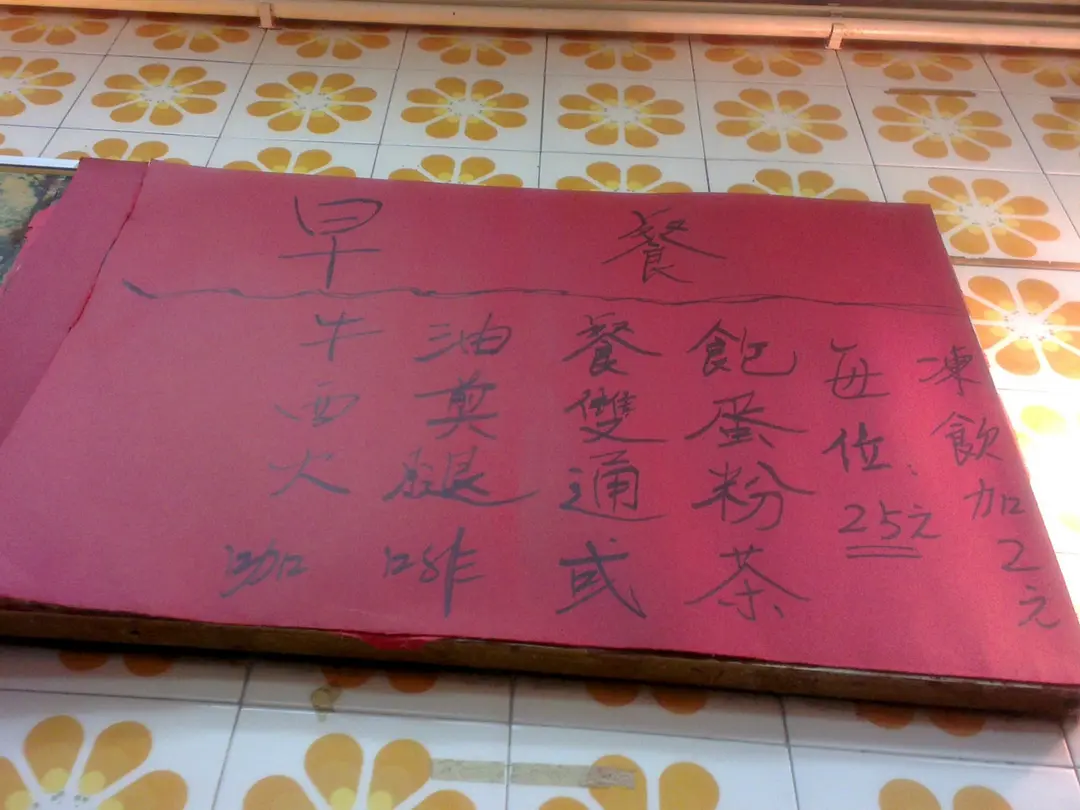 早餐
牛油餐飽
西煎雙蛋
火腿通粉
咖啡或茶
每位25元
凍飲加2元